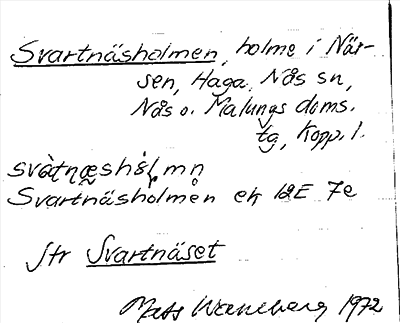 Svartnäsholmen, holme i När-
sen, Haga, Nås sn,
Nås o. Malungs doms.
tg, Kopp. l.
svàtn̥æshòl̥mn̥
Svartnäsholmen ek 12E 7e
Jtr Svartnäset
Mats Wenneberg 1972